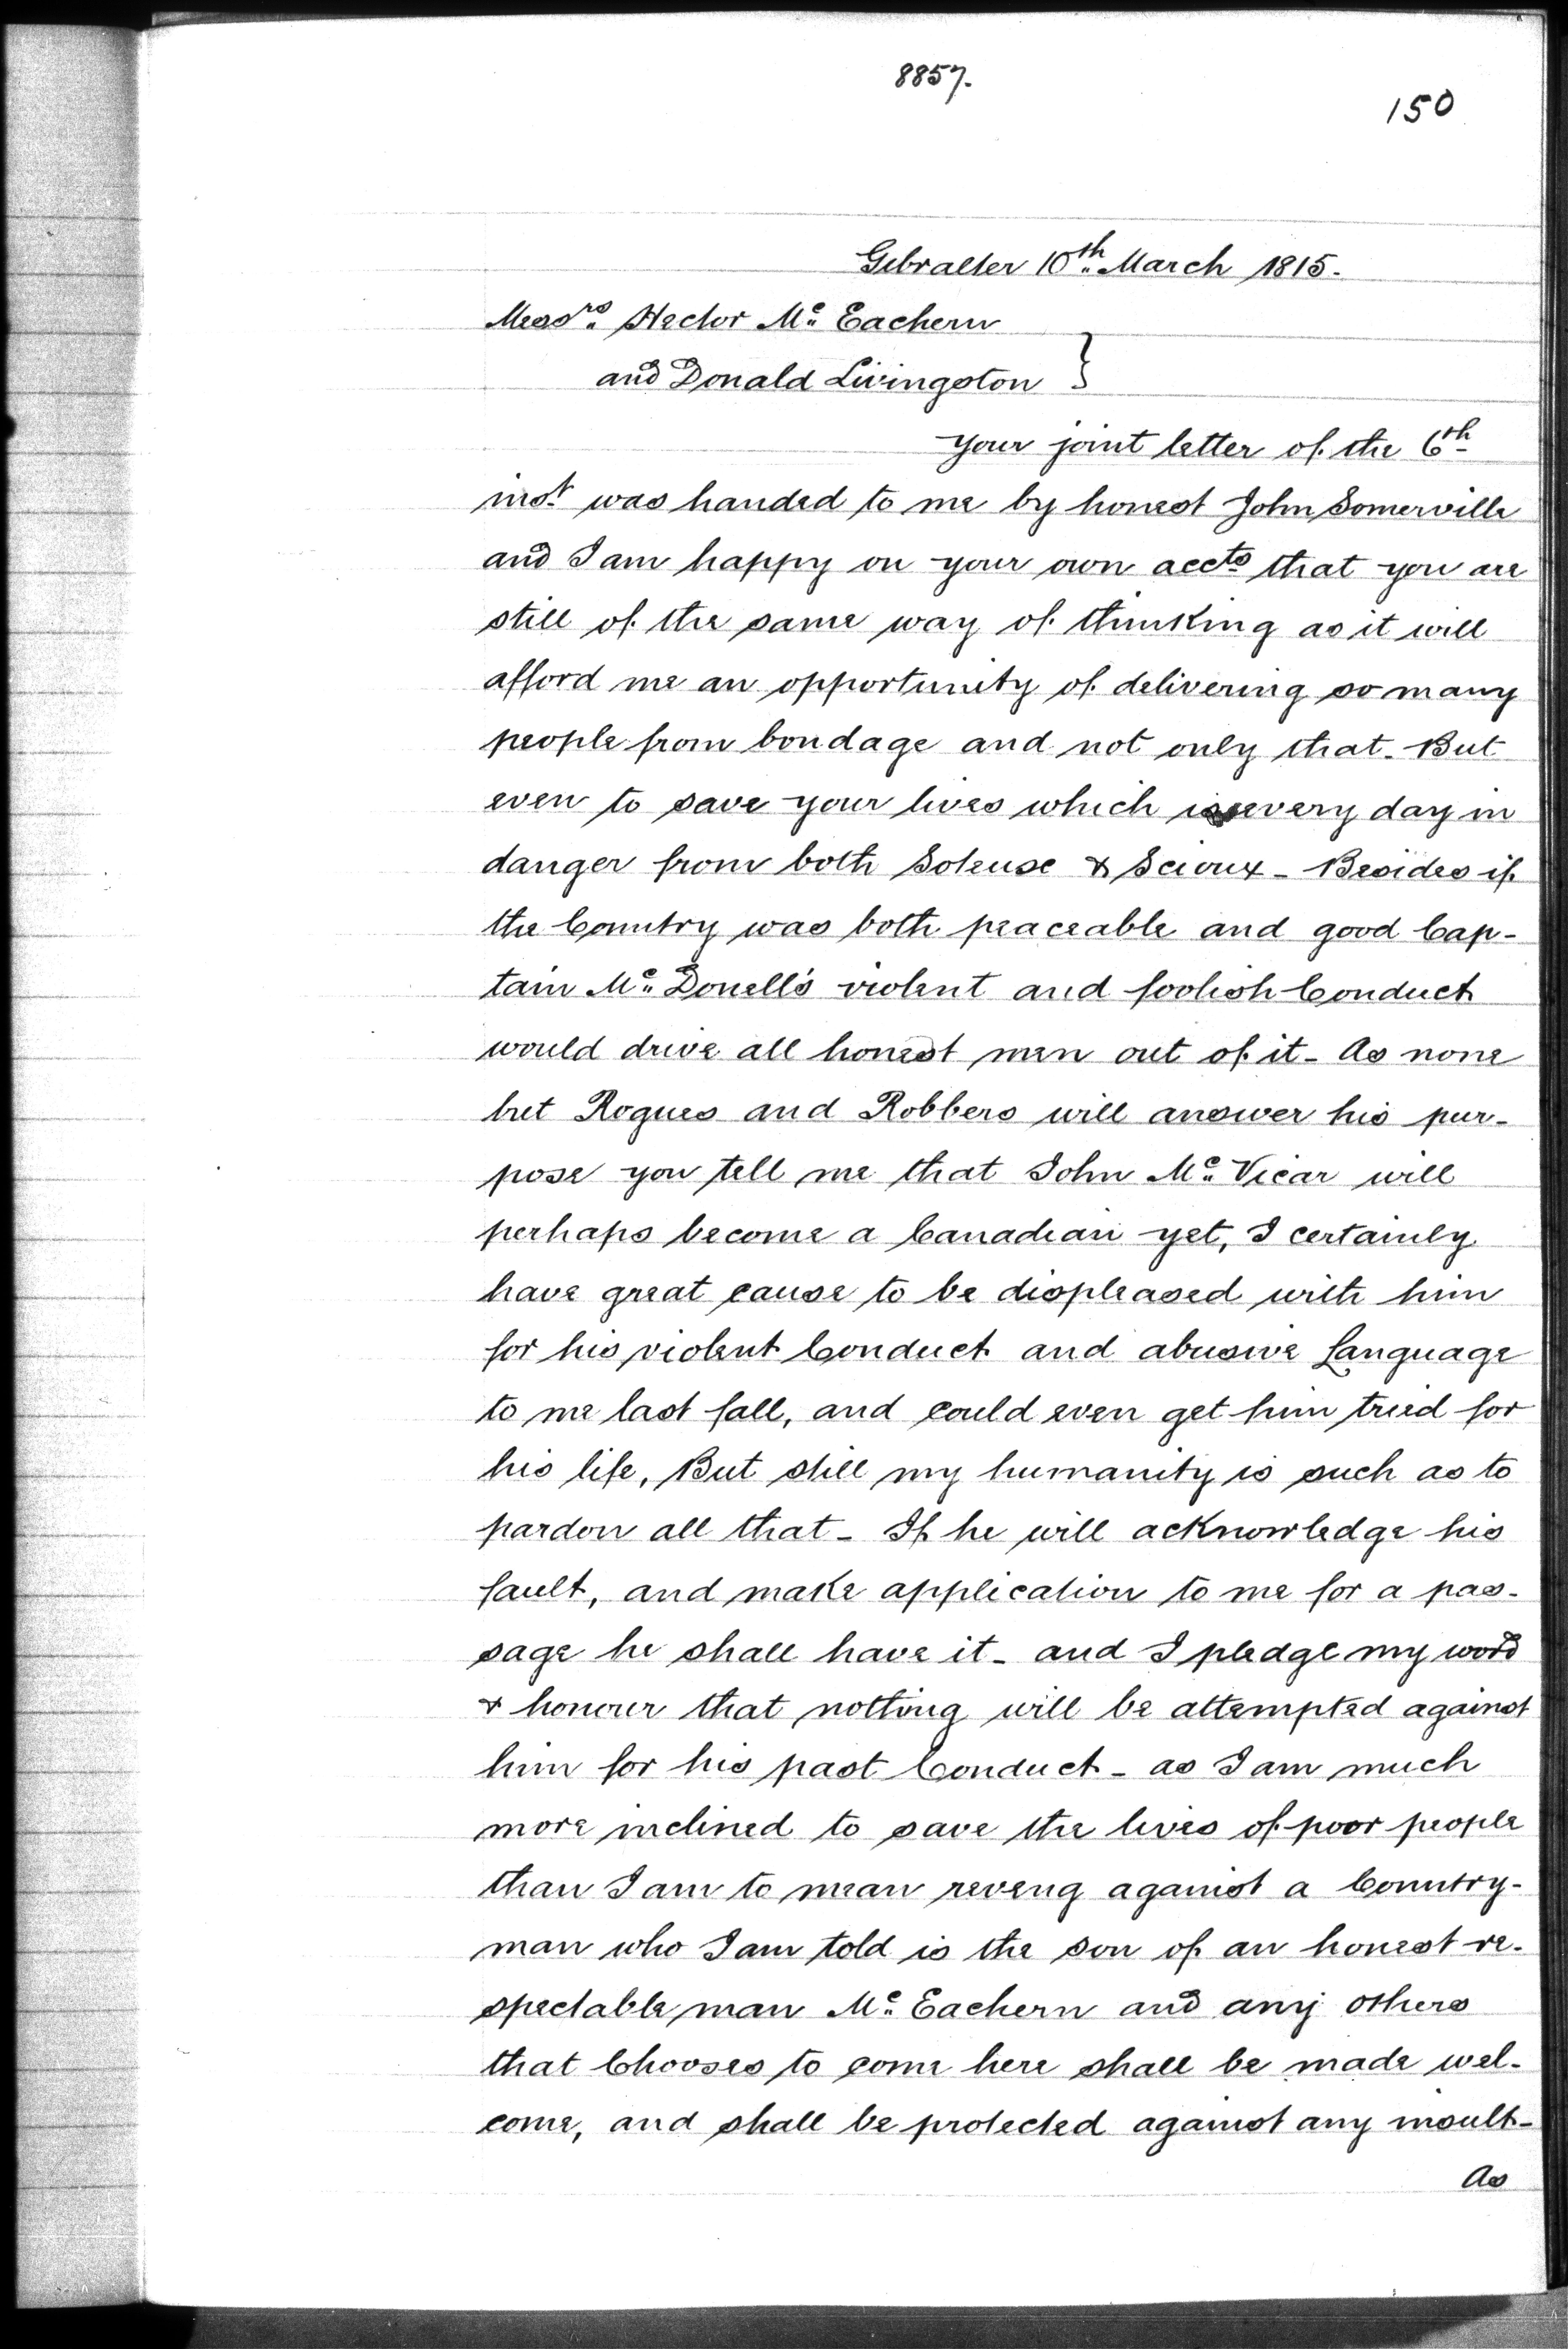 8857.
150
Gibralter 10th March 1815.
Messrs Hector Mc Eachern
and Donald Livingston }
Your joint letter of the 6th
inst was handed to me by honest John Somerville
and I am happy on your own accts that you are
still of the same way of thinking as it will
afford me an opportunity of delivering so many
people from bondage and not only that. But
even to save your lives which is every day in
danger from both Soteuse & Scioux - Besides if
the Country was both peaceable and good Cap-
tain Mc Donell's violent and foolish Conduct
would drive all honest men out of it - As none
but Rogues and Robbers will answer his pur-
pose you tell me that John Mc Vicar will
perhaps become a Canadian yet, I certainly
have great cause to be displeased with him
for his violent Conduct and abusive Language
to me last fall, and could even get him tried for
his life, But still my humanity is such as to
pardon all that - If he will acknowledge his
fault, and make application to me for a pas-
sage he shall have it - and I pledge my word
& honour that nothing will be attempted against
him for his past Conduct - as I am much
more inclined to save the lives of poor people
than I am to mean reveng against a Country-
man who I am told is the son of an honest re-
spectable man Mc Eachern and any others
that Chooses to come here shall be made wel-
come, and shall be protected against any insult -
As